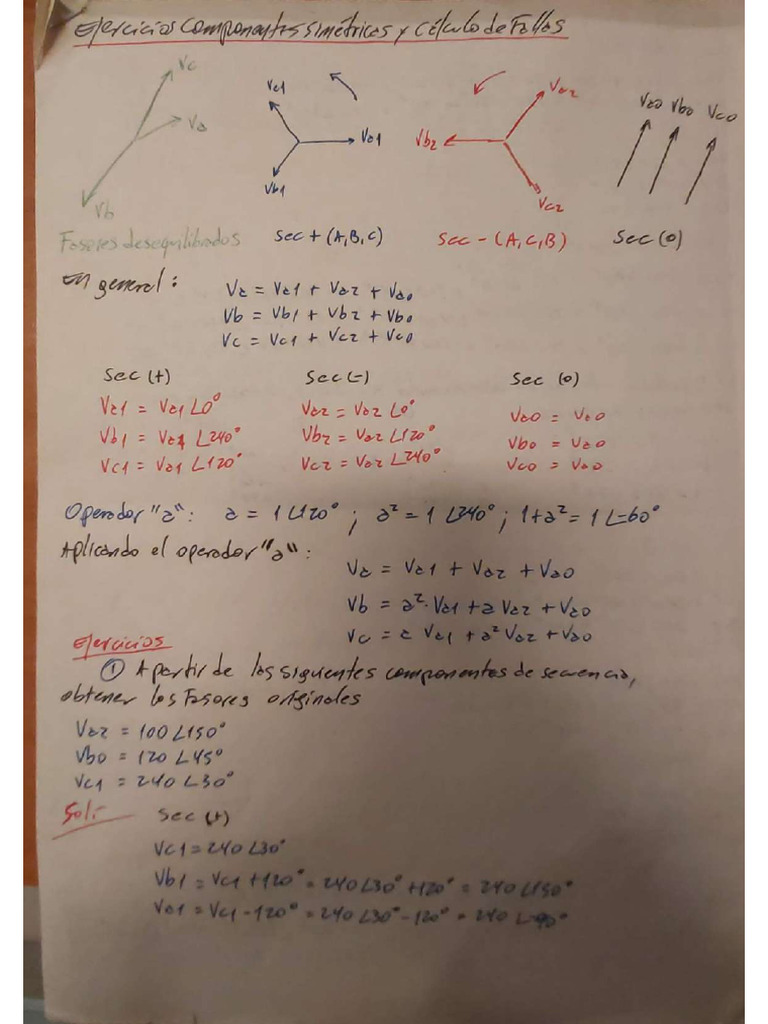 Ejercicios Componentes Simétricos y Cálculo de Fallas
Vc
Va
Vb
Vc1
Va1
Vb1
Va2
Vb2
Vc2
Va0 Vb0 Vc0
Fasores desequilibrados
Sec + (A,B,C)
Sec - (A,C,B)
Sec (0)
En general:
Va = Va1 + Va2 + Va0
Vb = Vb1 + Vb2 + Vb0
Vc = Vc1 + Vc2 + Vc0
Sec (+) Sec (-) Sec (0)
Va1 = Va1 ∠0° Va2 = Va2 ∠0° Va0 = Va0
Vb1 = Va1 ∠240° Vb2 = Va2 ∠120° Vb0 = Va0
Vc1 = Va1 ∠120° Vc2 = Va2 ∠240° Vc0 = Va0
Operador "a": a = 1∠120° ; a² = 1 ∠240° ; 1+a² = 1∠-60°
Aplicando el operador "a":
Va = Va1 + Va2 + Va0
Vb = a²·Va1 + a Va2 + Va0
Vc = a Va1 + a² Va2 + Va0
Ejercicios
① A partir de los siguientes componentes de secuencia,
obtener los Fasores originales
Va2 = 100∠150°
Vb0 = 120 ∠45°
Vc1 = 240∠30°
Sol:- Sec (+)
Vc1 = 240∠30°
Vb1 = Vc1 +120° = 240∠30°+120° = 240∠150°
Va1 = Vc1 -120° = 240∠30°-120° = 240∠-90°